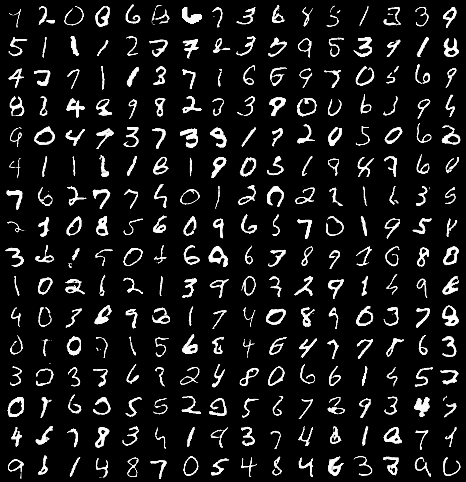 7 2 0 8 6 6 7 3 6 8 5 1 3 3 9
5 1 1 1 2 7 8 3 3 9 5 3 9 1 8
4 7 1 1 3 7 1 6 6 9 7 0 5 6 9
8 4 8 9 8 2 3 3 9 0 0 6 3 9 5
9 0 4 7 3 7 3 9 1 7 2 0 5 0 6 2
4 1 1 1 1 8 1 9 0 5 1 9 8 7 6 0
7 6 2 7 7 5 0 1 2 0 2 2 1 6 3 5
2 1 0 8 5 6 0 9 6 5 7 0 1 9 5 8
3 6 1 5 0 6 9 6 7 8 9 1 6 8 8
1 0 2 6 2 1 3 9 0 2 2 9 1 5 9 6
4 0 3 6 9 2 1 7 4 0 8 9 0 3 7 8
0 1 0 7 1 5 6 8 4 6 4 7 7 8 6 3
3 0 3 3 6 7 2 4 8 0 6 6 1 4 5 2
0 8 6 0 5 5 2 9 5 6 7 8 9 3 4 5
4 5 7 8 3 4 1 9 3 7 4 8 1 2 7 1
9 8 1 4 8 7 0 5 4 8 4 6 3 8 9 0